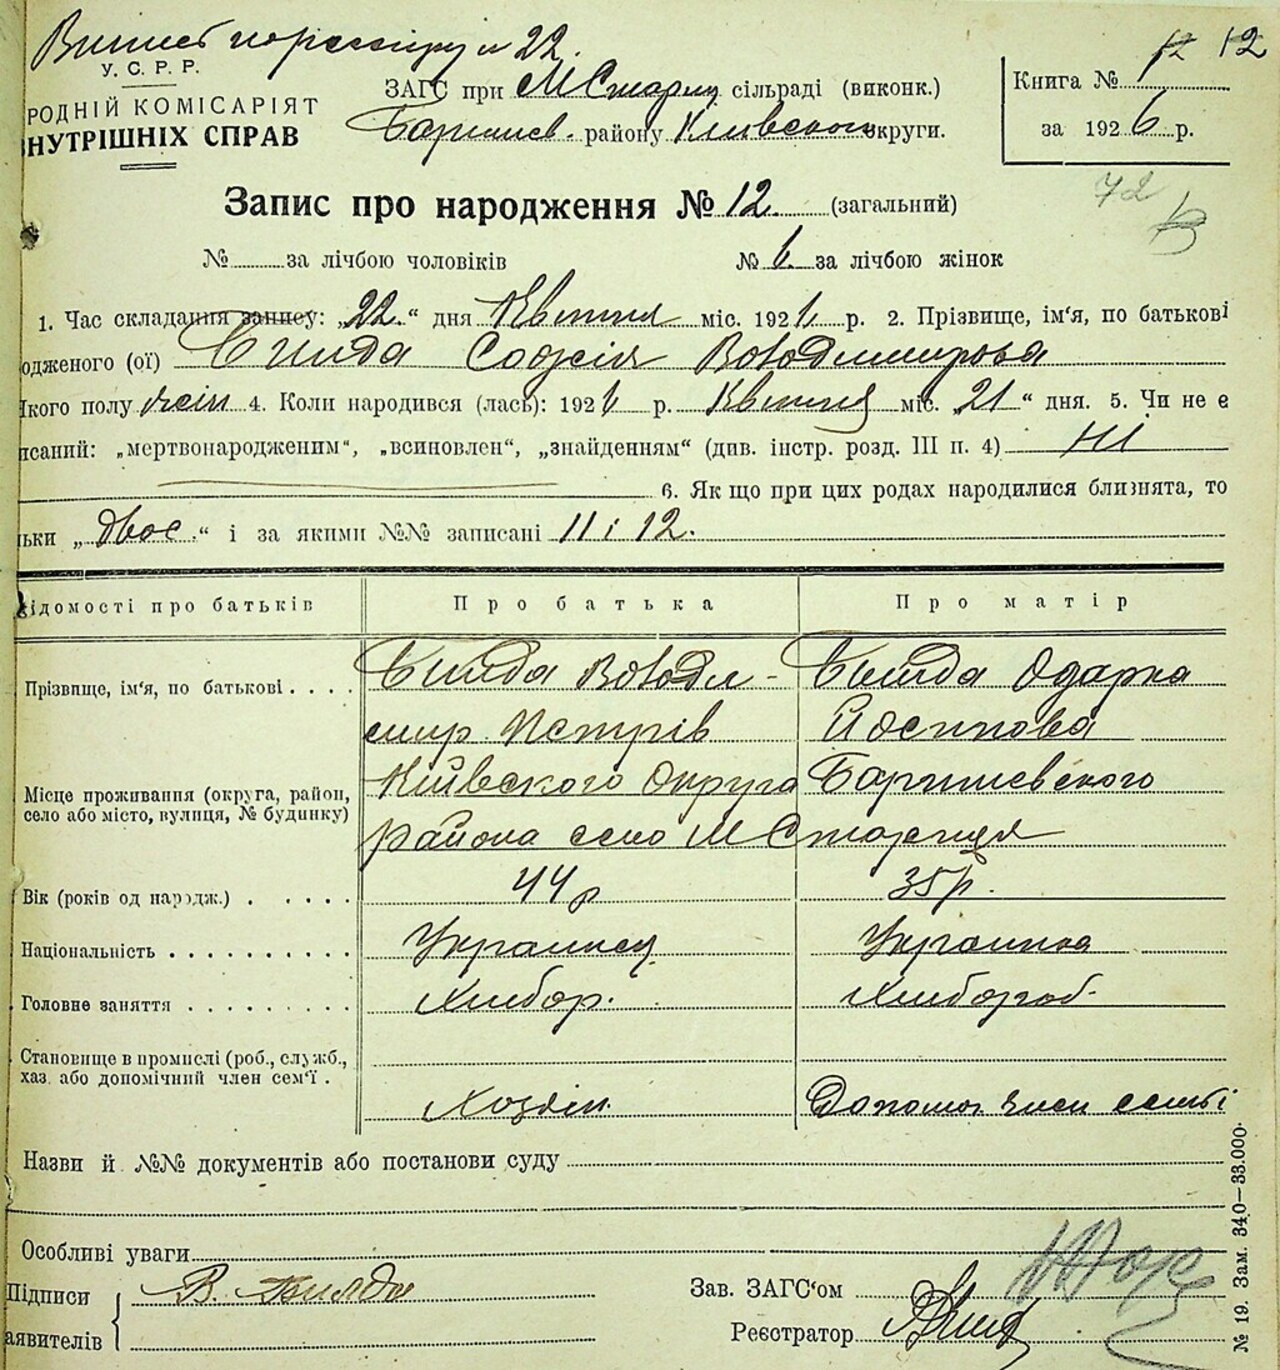 № 22.
12 12
У. С. Р. Р.
РОДНІЙ КОМІСАРІЯТ
НУТРІШНІХ СПРАВ
ЗАГС при М Стариц сільраді (виконк.)
Баришев. району Київского округи.
Книга №
за 1926 р.
Запис про народження № 12. (загальний)
72
№ за лічбою чоловіків
№ 6 за лічбою жінок
1. Час складання запису: „22“ дня Квітня міс. 1926 р. 2. Прізвище, ім'я, по батькові
одженого (ої) Софія Володимирова
якого полу жін 4. Коли народився (лась): 1926 р. Квітня міс. „21“ дня. 5. Чи не є
писаний: „мертвонародженим“, „всиновлен“, „знайденням“ (див. інстр. розд. III п. 4) Ні
6. Як що при цих родах народилися близнята, то
льки „двоє“ і за якими №№ записані 11 і 12.
ідомості про батьків
Про батька
Про матір
Прізвище, ім'я, по батькові
Володи-
Одарка
мир Петрів
Йосипова
Місце проживання (округа, район,
село або місто, вулиця, № будинку)
Київского Округа Баришевского
района село М Старица
Вік (років од народж.)
44 р
35 р.
Національність
Украинец
Украинка
Головне заняття
Хлибор.
Хлибороб.
Становище в промислі (роб., служб.,
хаз. або допомічний член сем'ї.
Хозяін.
Допомож. член семьі
Назви й №№ документів або постанови суду
Особливі уваги
Підписи
аявителів
В.
Зав. ЗАГС'ом
Реєстратор
№ 19. Зам. 340—33.000.